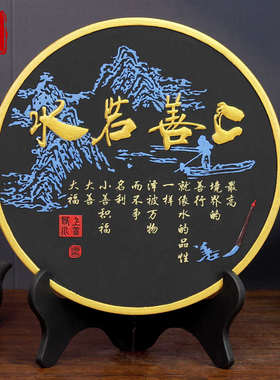 上善若水
最高
境界的
善行
就像水的品性
一样
泽被万物
而不争
名利
小善积福
大善
大福
上善若水